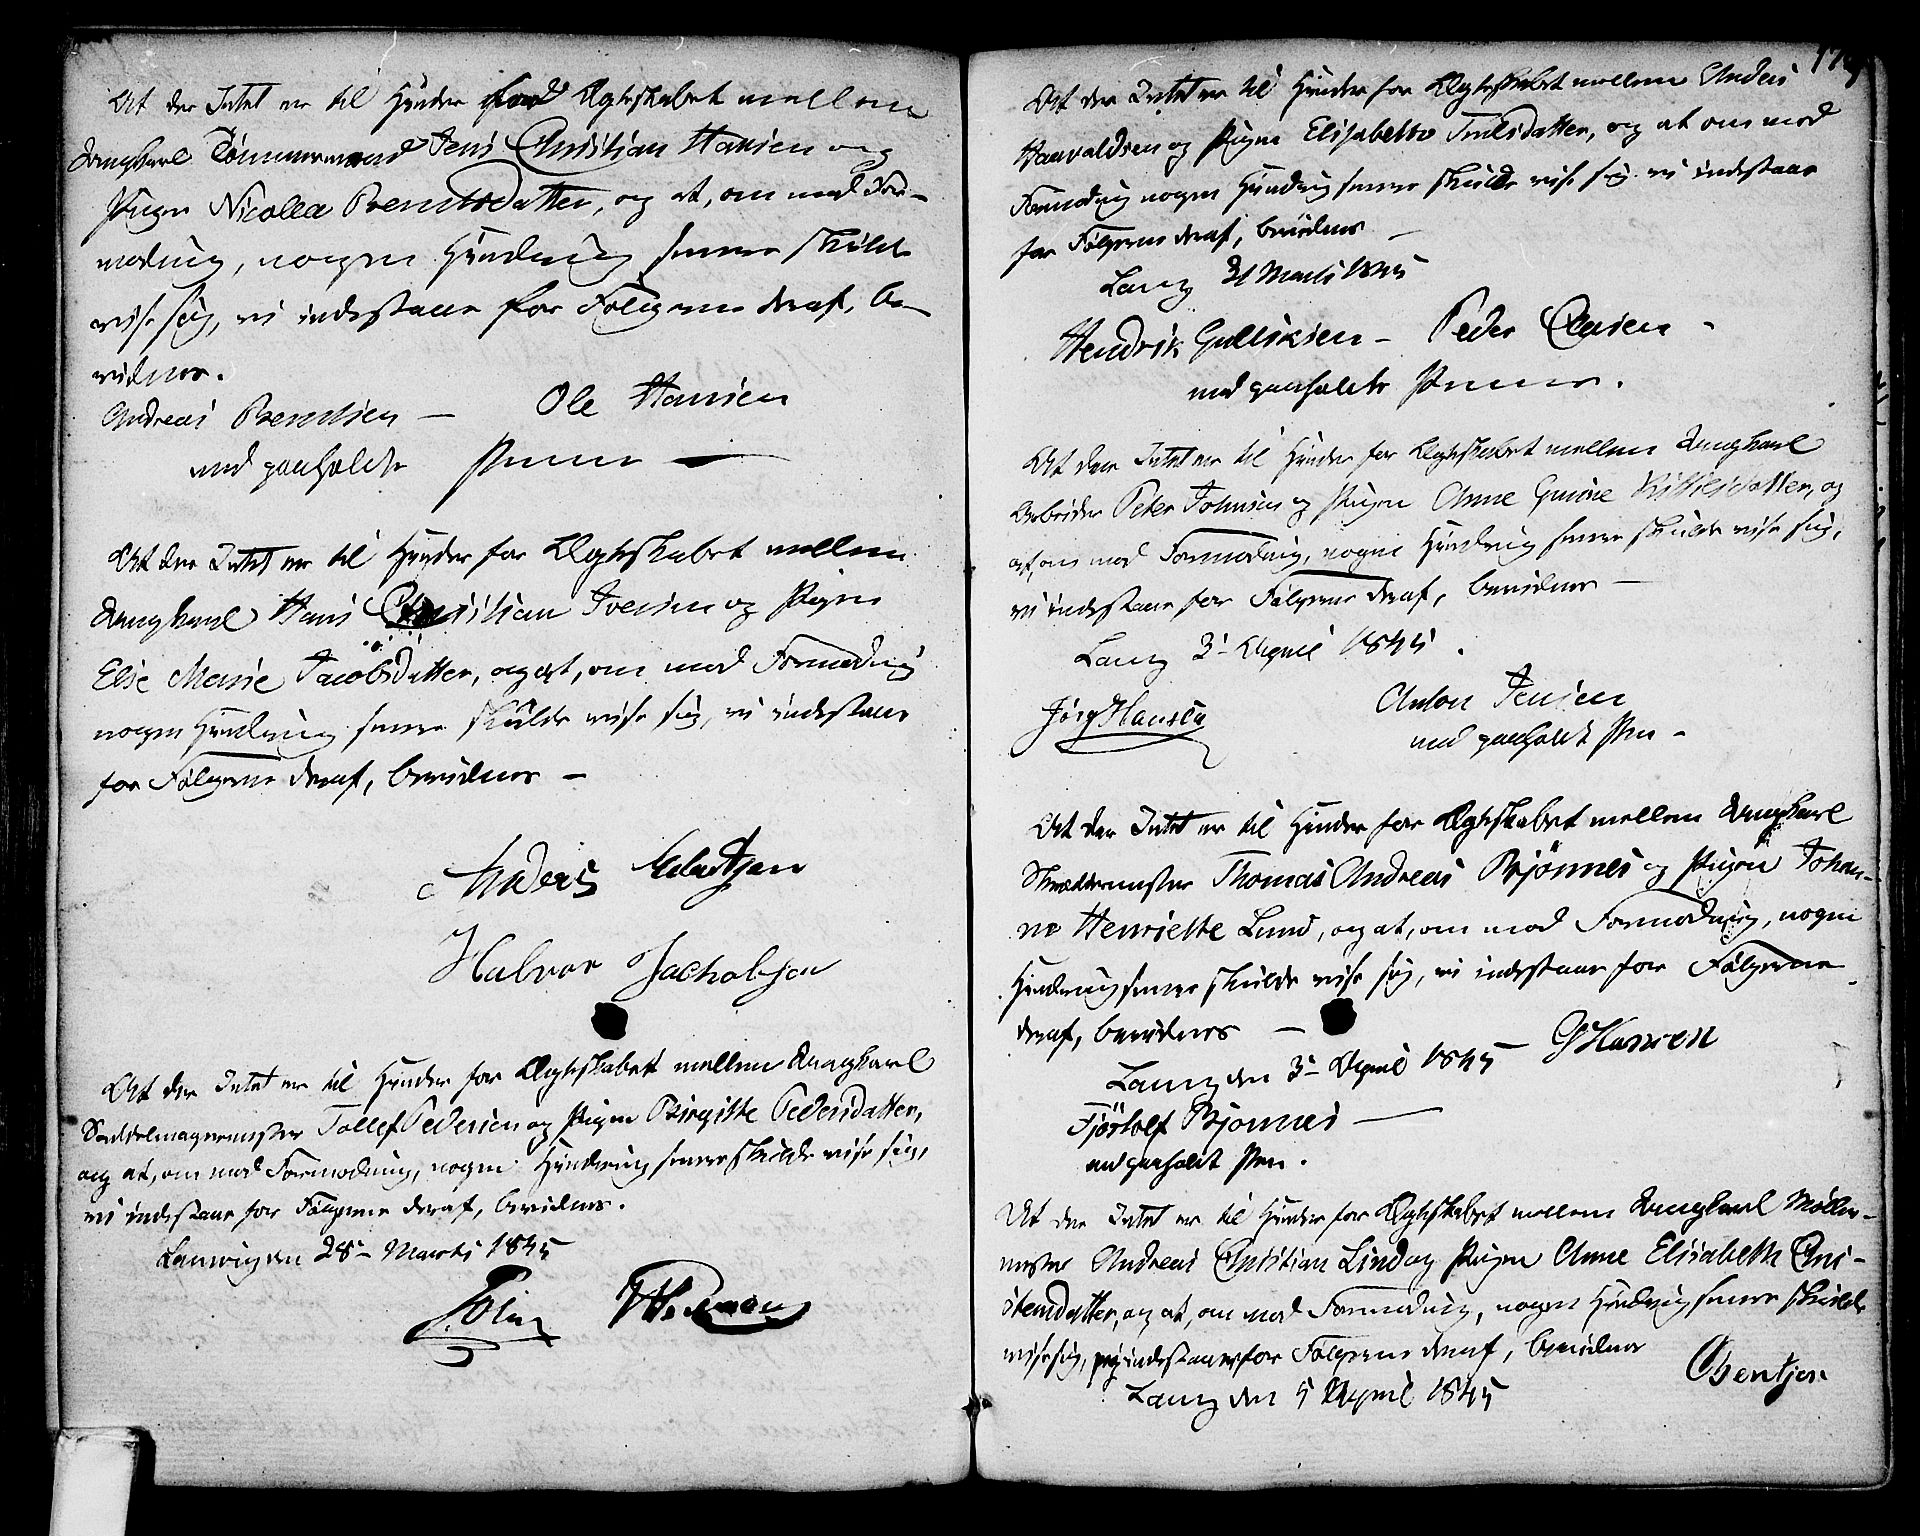 At der Intet er til Hinder for Ægteskabet mellem
Ungkarl Tømmermand Jens Christian Hansen og
Pigen Nicolea Berntsdatter, og at, om mod For-
modning, nogen Hindring senere skulde
vise sig, vi indestaae for Følgerne deraf, be-
vidnes.
Andreas Berntsen — Ole Hansen
med paaholdte Penne —
At der Intet er til Hinder for Ægteskabet mellem
Ungkarl Hans Christian Iversen og Pigen
Else Marie Jacobsdatter, og at, om mod Formodning
nogen Hindring senere skulde vise sig, vi indestaae
for Følgerne deraf, bevidnes —
Anders
Halvor Jachobsen
At der Intet er til Hinder for Ægteskabet mellem Ungkarl
Saddelmagermester Tollef Pedersen og Pigen Birgitte Pedersdatter,
og at, om mod Formodning, nogen Hindring senere skulde vise sig,
vi indestaae for Følgerne deraf, bevidnes.
Laurvig den 28- Marts 1845
179
At der Intet er til Hinder for Ægteskabet mellem Anders
Haavaldsen og Pigen Elisabeth Truelsdatter, og at om mod
Formodning nogen Hindring senere skulde vise sig vi indestaae
for Følgerne deraf, bevidnes —
Laurv 31 Marts 1845
Hendrik Gulliksen — Peder Olsen —
med paaholdte Penne.
At der Intet er til Hinder for Ægteskabet mellem Ungkarl
Arbeider Peter Johnsen og Pigen Anne Gurine Kittilsdatter, og
at, om mod Formodning, nogen Hindring senere skulde vise sig,
vi indestaae for Følgerne deraf, bevidnes —
Laurv 3- April 1845.
Jørg Hansen Anton Jensen
med paaholdt Pen —
At der Intet er til Hinder for Ægteskabet mellem Ungkarl
Skræddermester Thomas Andreas Bjønnes og Pigen Johan-
ne Henriette Lund, og at, om mod Formodning, nogen
Hindring senere skulde vise sig, vi indestaae for Følgerne
deraf, bevidnes —
Laurv den 3- April 1845 Hansen
Fjøstolf Bjønnes —
med paaholdt Pen.
At der Intet er til Hinder for Ægteskabet mellem Ungkarl Møller-
mester Andreas Christian Lind og Pigen Anne Elisabeth Chri-
stensdatter, og at, om mod Formodning, nogen Hindring senere skulde
vise sig, vi indestaae for Følgerne deraf, bevidnes
Laurv den 5 April 1845